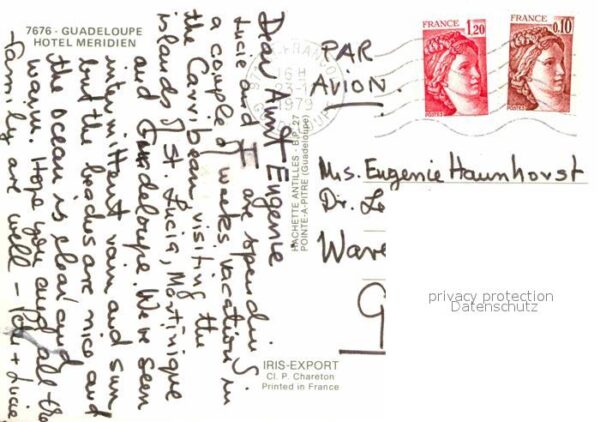 7676 - GUADELOUPE
HOTEL MERIDIEN
Dear Aunt Eugenie
Lucie and I are spending
a couple of weeks, vacation in
the Carribean visiting the
islands of St. Lucia, Martinique
and Guadeloupe. We've seen
intermittent rain and sun
but the beaches are nice and
the ocean is clear and
warm. Hope you and all the
family are well - Pete + Lucie
16 H
23-1
1979
GUADELOUPE
HACHETTE ANTILLES - B.P. 27
POINTE-A-PITRE (Guadeloupe)
PAR
AVION.
FRANCE
1,20
POSTES
FRANCE
0,10
POSTES
Ms. Eugenie Haunhorst
Dr. Le
Ware
G
IRIS-EXPORT
Cl. P. Chareton
Printed in France
privacy protection
Datenschutz